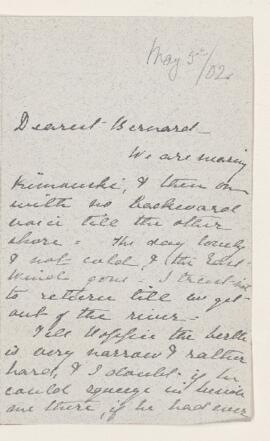 May 5th/02.
Dearest Bernard
We are nearing
Rimouski, & then on
with no backward
voice till the other
shore. The day lovely
& not cold, & the East
wind gone. I trust not
to return till we get
out of the river.
Tell the berth
is very narrow & rather
hard, & I doubt if he
could squeeze in beside
me there, if he had ever